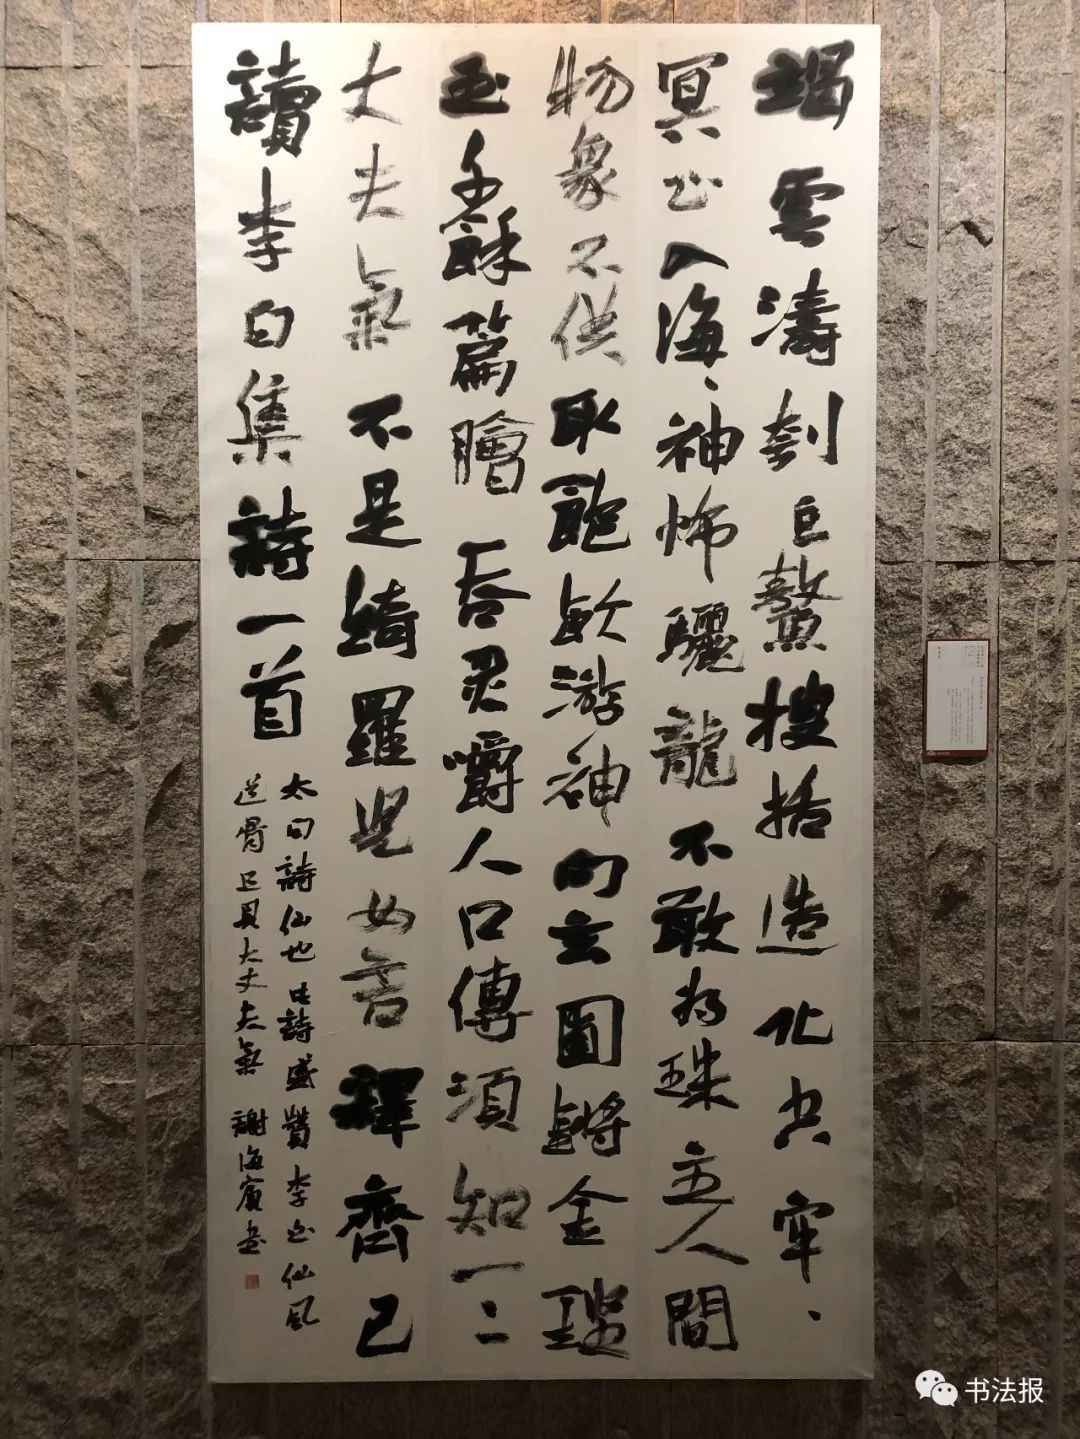 竭雲濤刳巨鰲搜括造化空牢、
冥心入海、神怖驪龍不敢為珠主人間
物象不供取飽飲游神向玄圃鏘金鏗
玉千餘篇膾吞炙嚼人口傳須知一二
丈夫氣不是綺羅兒女言釋齊己
讀李白集詩一首
太白詩仙也此詩盛贊李白仙風
道骨且具大丈夫氣 謝海賓書
书法报